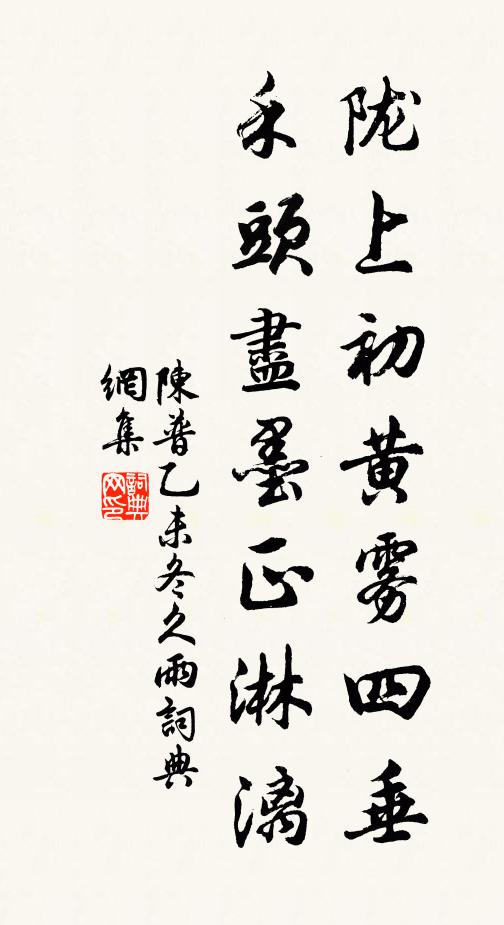 陇上初黄雾四垂
禾頭盡墨正淋漓
陳普乙未冬久雨詞典
網集
詞典
网印